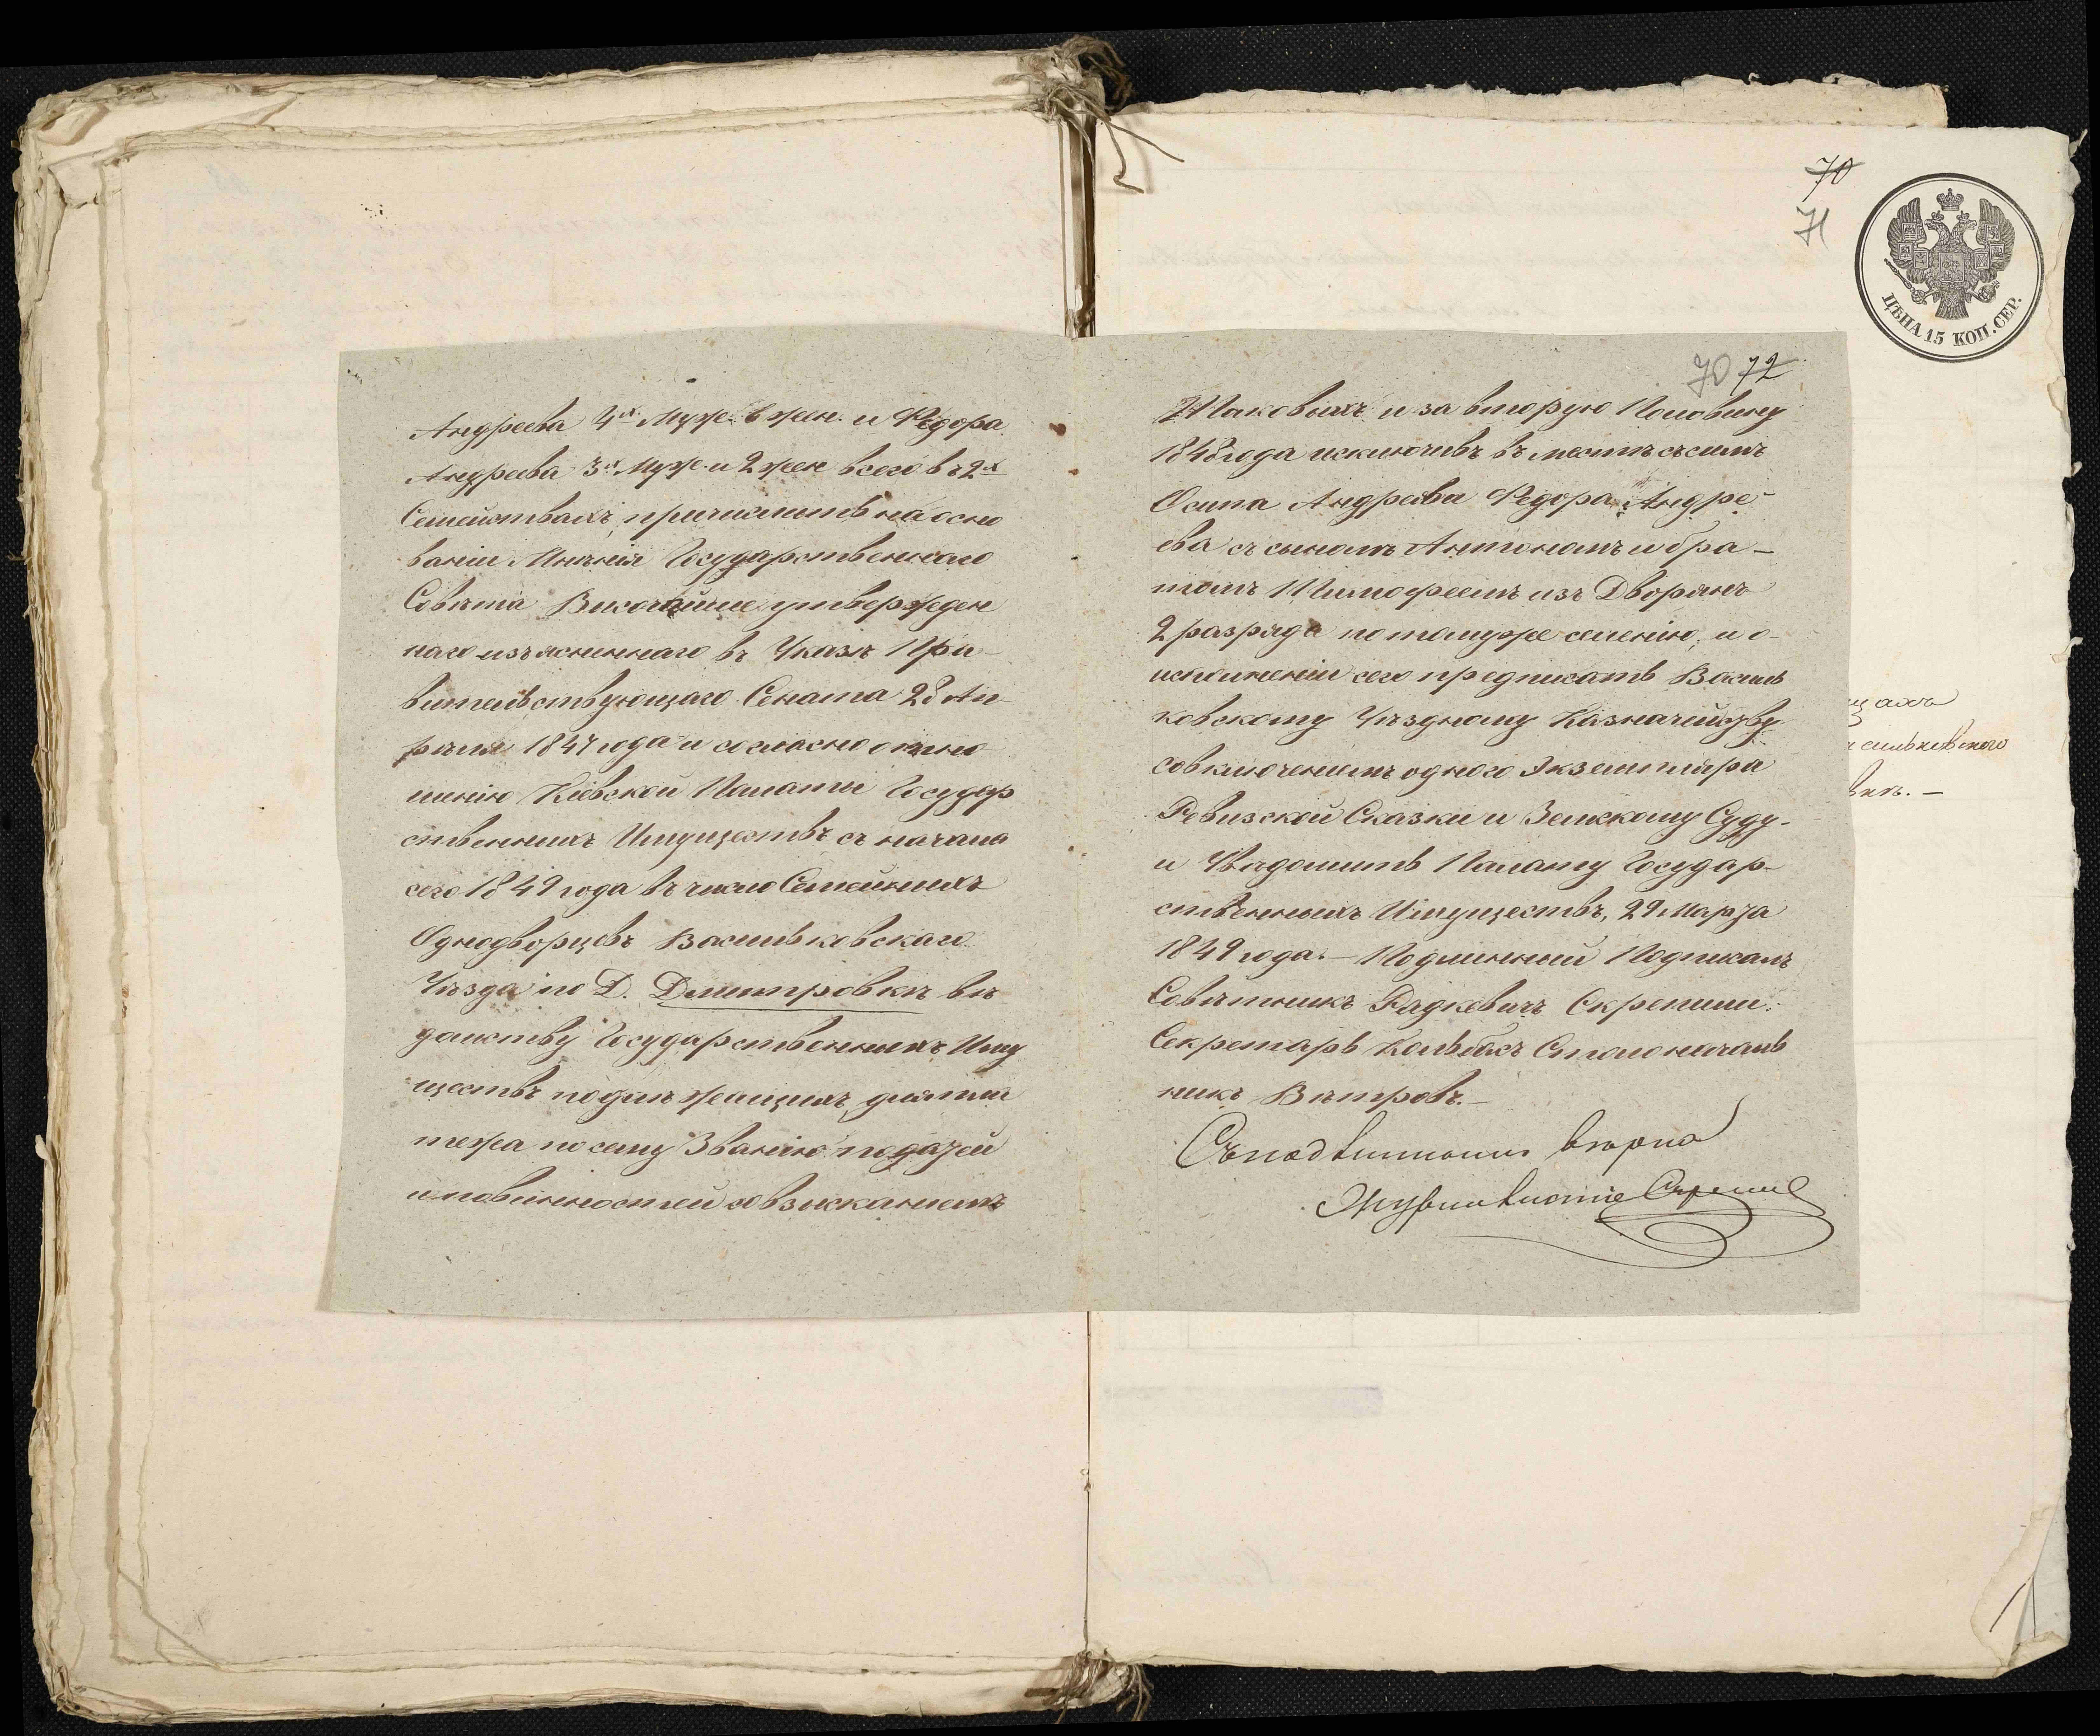 Андреева 4х Муж. 6 жен. и Федора
Андреева 3х Муж. и 2 жен всего въ 2х
Семействахъ, причислить на осно
ваніи Мнѣнія Государственнаго
Совѣта Высочайше утвержден
наго изъясненнаго въ Указѣ Пра-
вительствующаго Сената 28 Ап-
рѣля 1847 года и согласно отно
шенію Кіевской Палаты Государ
ственныхъ Имуществъ съ начала
сего 1849 года въ число Семейныхъ
Однодворцевъ Васильковскаго
Уѣзда по Д. Дмитровкѣ вѣ
домству Государственныхъ Иму
ществъ подлежащихъ, для пла
тежа по сему Званію податей
и повинностей со взысканіемъ
70
71
ЦѢНА 15 КОП. СЕР.
70 72
Таковыхъ и за вторую Половину
1848 года исключивъ вместѣ съ симъ
Осипа Андреева Федора Андре-
ева съ сыномъ Антономъ и бра-
томъ Тимофеемъ изъ Дворянъ
2 разряда по томуже селенію, и о-
исполненіи сего предписать Василь
ковскому Уѣздному Казначейству
со включеніемъ одного Экземпляра
Ревизской Сказки и Земскому Суду.
и Увѣдомить Палату Государ-
ственныхъ Имуществъ, 29 Марта
1849 года. — Подлинный Подписалъ
Совѣтникъ Радкевичъ Скрепили:
Секретарь Столоначаль
никъ Вѣтровъ. —
Съ подлиннымъ вѣрно
цахъ
сильковскаго
вкѣ. —